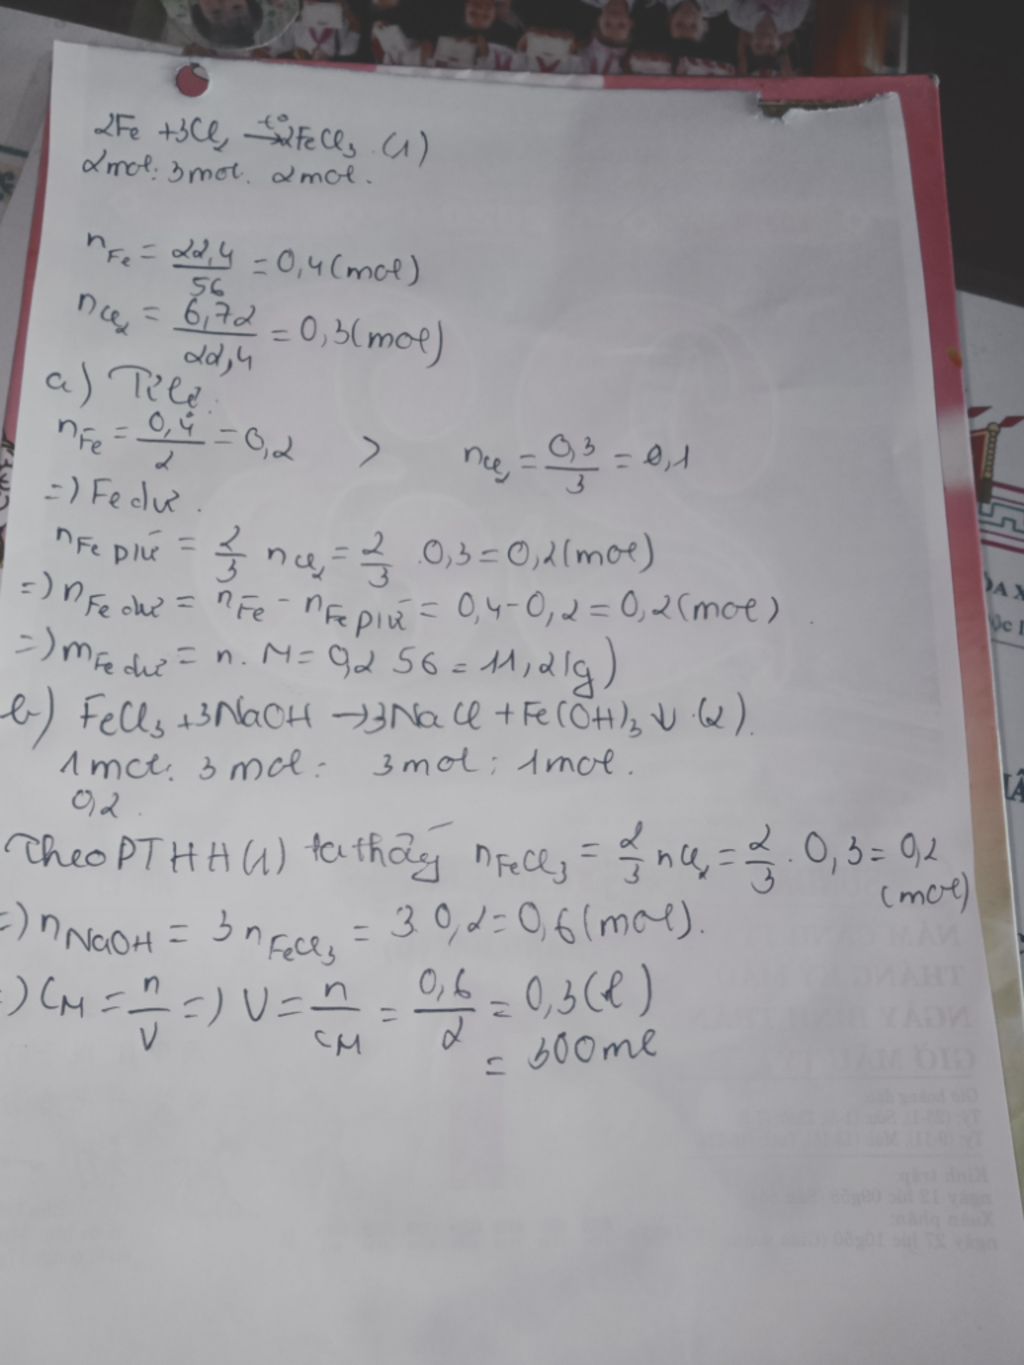 2Fe + 3Cl₂ →t° 2FeCl₃ (1)
2mol: 3mol. 2mol.
n Fe = 22,4/56 = 0,4 (mol)
n Cl₂ = 6,72/22,4 = 0,3 (mol)
a) Tỉ lệ:
n Fe = 0,4/2 = 0,2 > n Cl₂ = 0,3/3 = 0,1
=) Fe dư.
n Fe pứ = 2/3 n Cl₂ = 2/3 . 0,3 = 0,2 (mol)
=) n Fe dư = n Fe - n Fe pứ = 0,4 - 0,2 = 0,2 (mol)
=) m Fe dư = n. M = 0,2 56 = 11,2 (g)
b) FeCl₃ + 3NaOH → 3NaCl + Fe(OH)₃ ↓ (2).
1mol: 3mol: 3mol: 1mol.
0,2.
Theo PTHH (1) ta thấy n FeCl₃ = 2/3 n Cl₂ = 2/3 . 0,3 = 0,2
(mol)
=) n NaOH = 3 n FeCl₃ = 3. 0,2 = 0,6 (mol).
=) CM = n/V =) V = n/CM = 0,6/2 = 0,3 (l)
= 300ml